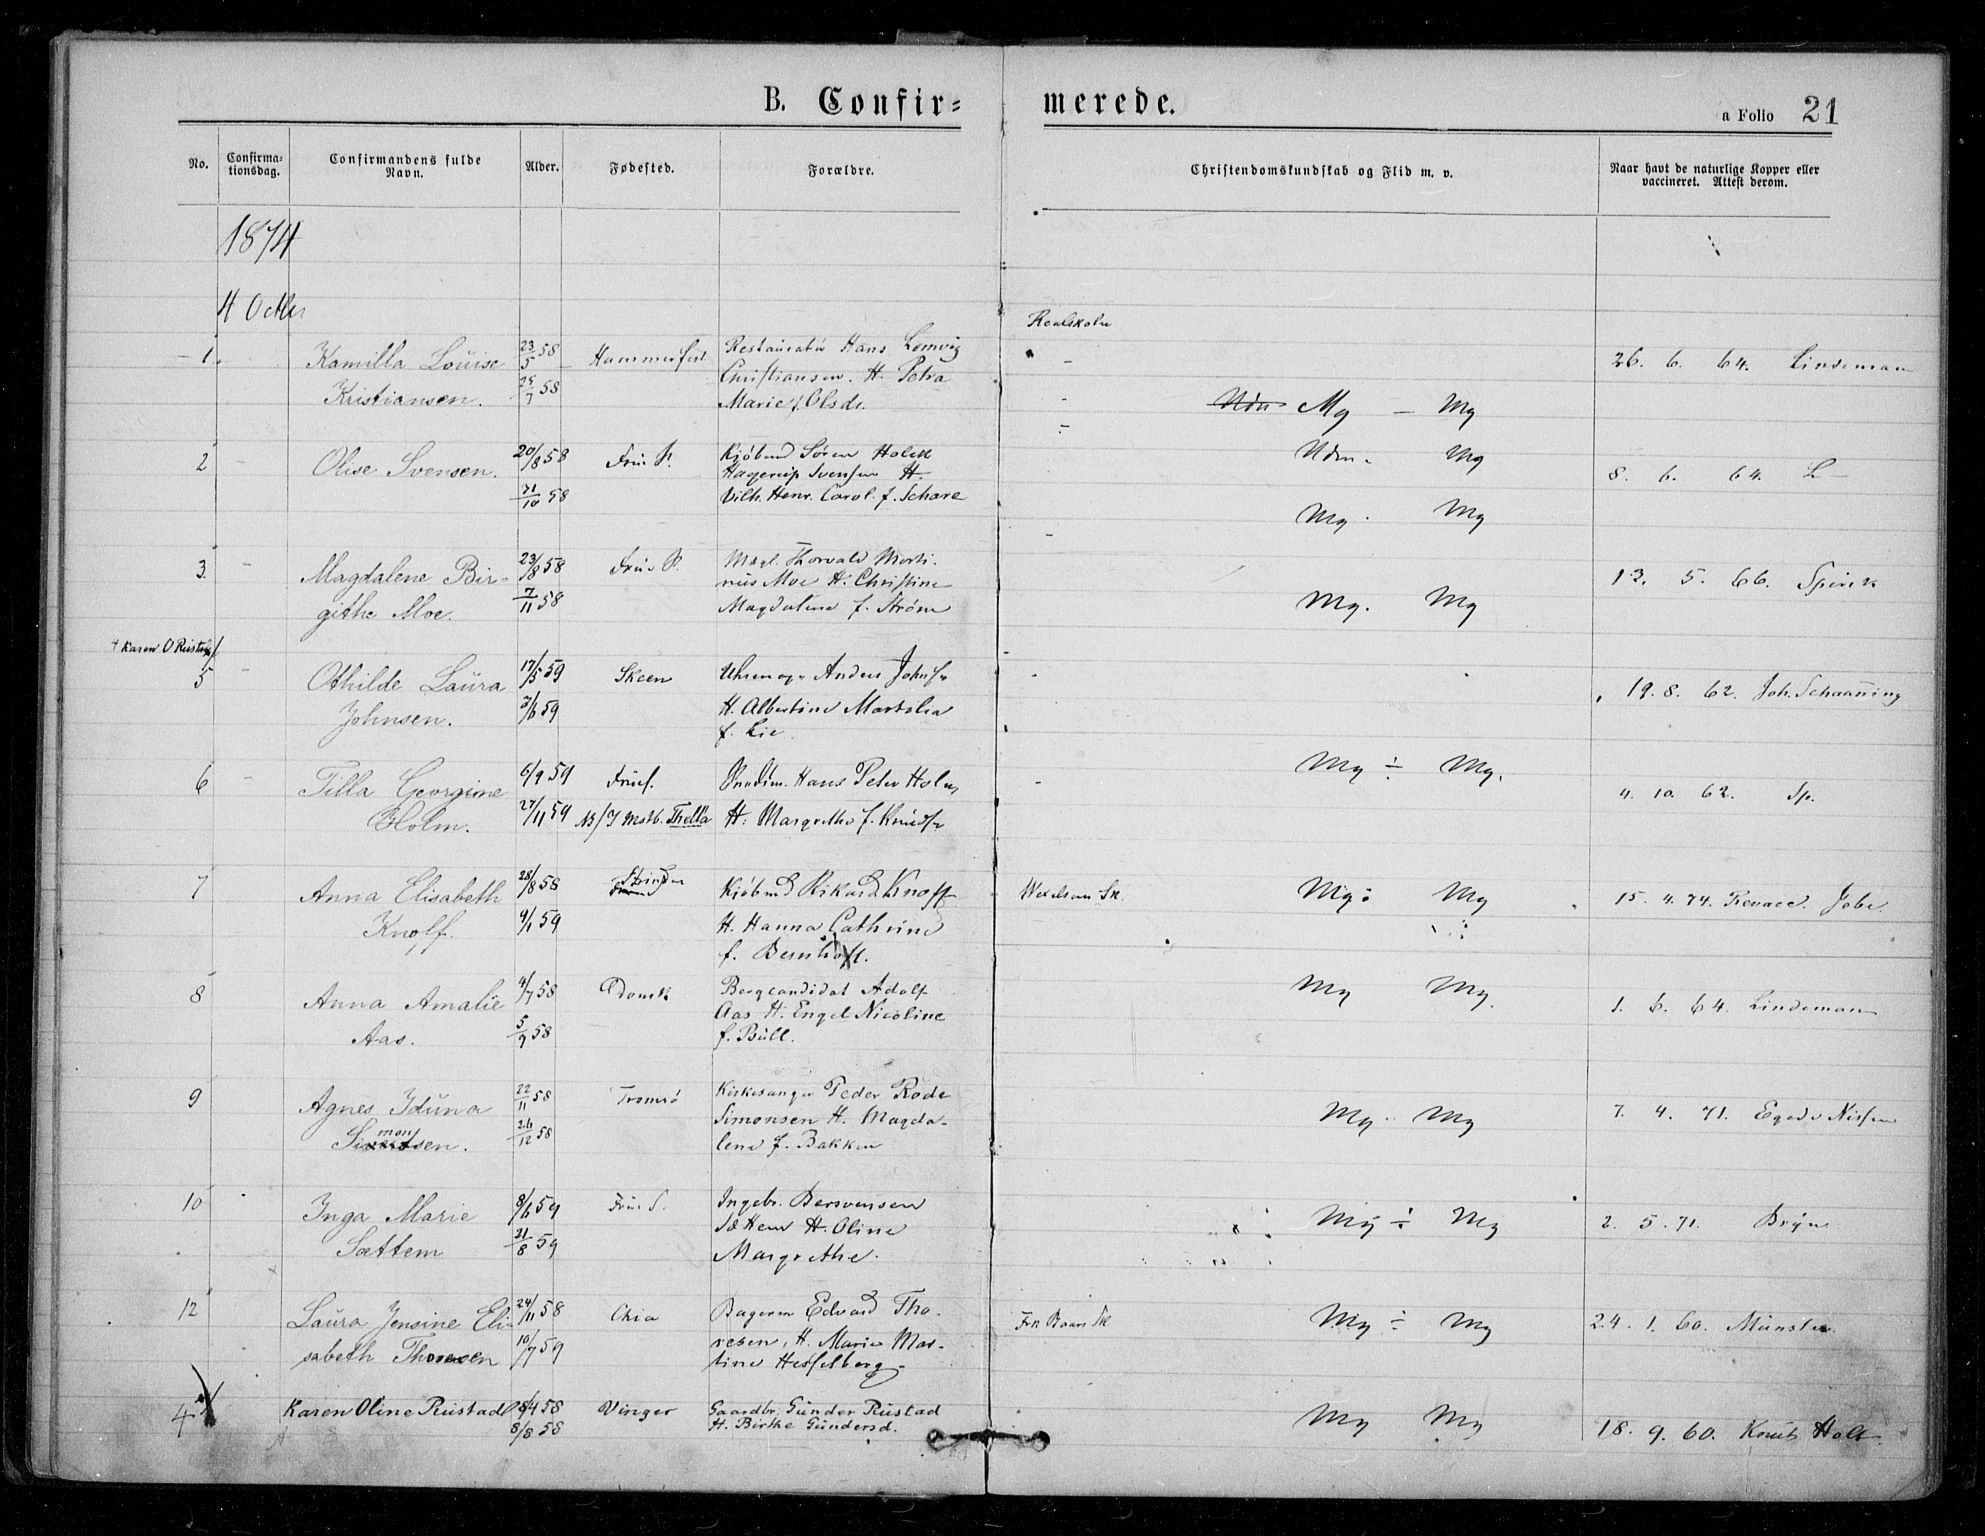 B. Confir=
merede.
a Folio 21
No.
Confirma-
tionsdag.
Confirmandens fulde
Navn.
Alder.
Fødested.
Forældre.
Christendomskundskab og Flid m. v.
Naar havt de naturlige Kopper eller
vaccineret. Attest derom.
1874
4 Octbr
Realskolen
1. Kamilla Louise 23/5 58 Hammerfest Restauratør Hans Lemvig 26. 6. 64. Lindeman
Kristiansen. 58 Christiansen. H. Petra
Marie f. Olsdr. Mg - Mg
2 Olise Svensen. 20/8 58 Frue S. Kjøbmd Søren Holck Udm. Mg
Hagerup Svensen H. 8. 6. 64. L-
/10 58 Vilh. Henr. Carol. f. Schare
Mg Mg
3. Magdalene Bir- 23/8 58 Frue S. Thorvald Morti-
githe Moe. 7/11 58 nius Moe H. Christine 13. 5. 66.
Magdalene f. Strøm Mg. Mg
4 Karen O Rustad
5 Othilde Laura 17/5 59 Skeen Anders Johnsn 19. 8. 62. Joh. Schaanning
Johnsen. 59 H. Albertine
f. Lie.
6 Tilla Georgine 6/9 59 Fruef. Hans Peter Holm Mg ÷ Mg.
4. 10. 62. Sp.
Holm. 27/11 59 NB/I Mstb. Thella H. Margrethe f. Knudsn
7 Anna Elisabeth 28/8 58 Strinden Kjøbmd Rikard Knoff Wexelsens Sk. Mg. Mg 15. 4. 74. Revacc. Jebe.
Knoff. 9/1 59 H. Hanna Cathrine
f. Bernhoft.
8 Anna Amalie 4/7 58 Bergcandidat Adolf Mg Mg.
Aas. 5/9 58 Aas H. Engel Nicoline 1. 6. 64. Lindeman
f. Bull.
9 Agnes Iduna 22/11 58 Tromsø Kirkesanger Peder Rode
Simonsen. 26/12 58 Simonsen H. Magda- Mg Mg 7. 4. 71. Egede Nissen
lene f. Bakken
10 Inga Marie 8/6 59 Frue S. Ingebr. Bersvensen Mg ÷ Mg 2. 5. 71. Bryn
Sættem 21/8 59 Sættem H. Oline
Margrethe.
12 Laura Jensine Eli- 24/11 58 Chia Bagerm Edvard Tho- Frk Baars Sk Mg ÷ Mg 24. 1. 60. Münster
sabeth Thoresen 10/7 59 resen, H. Marie Mar-
tine Hesselberg.
4 Karen Oline Rustad 58 Vinger Gaardbr. Gunder Rustad Mg Mg
8/8 58 H. Birthe Gundersd. 18. 9. 60. Knut Holt.